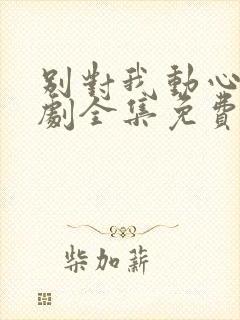 別對我動心
劇全集免費
柴加薪